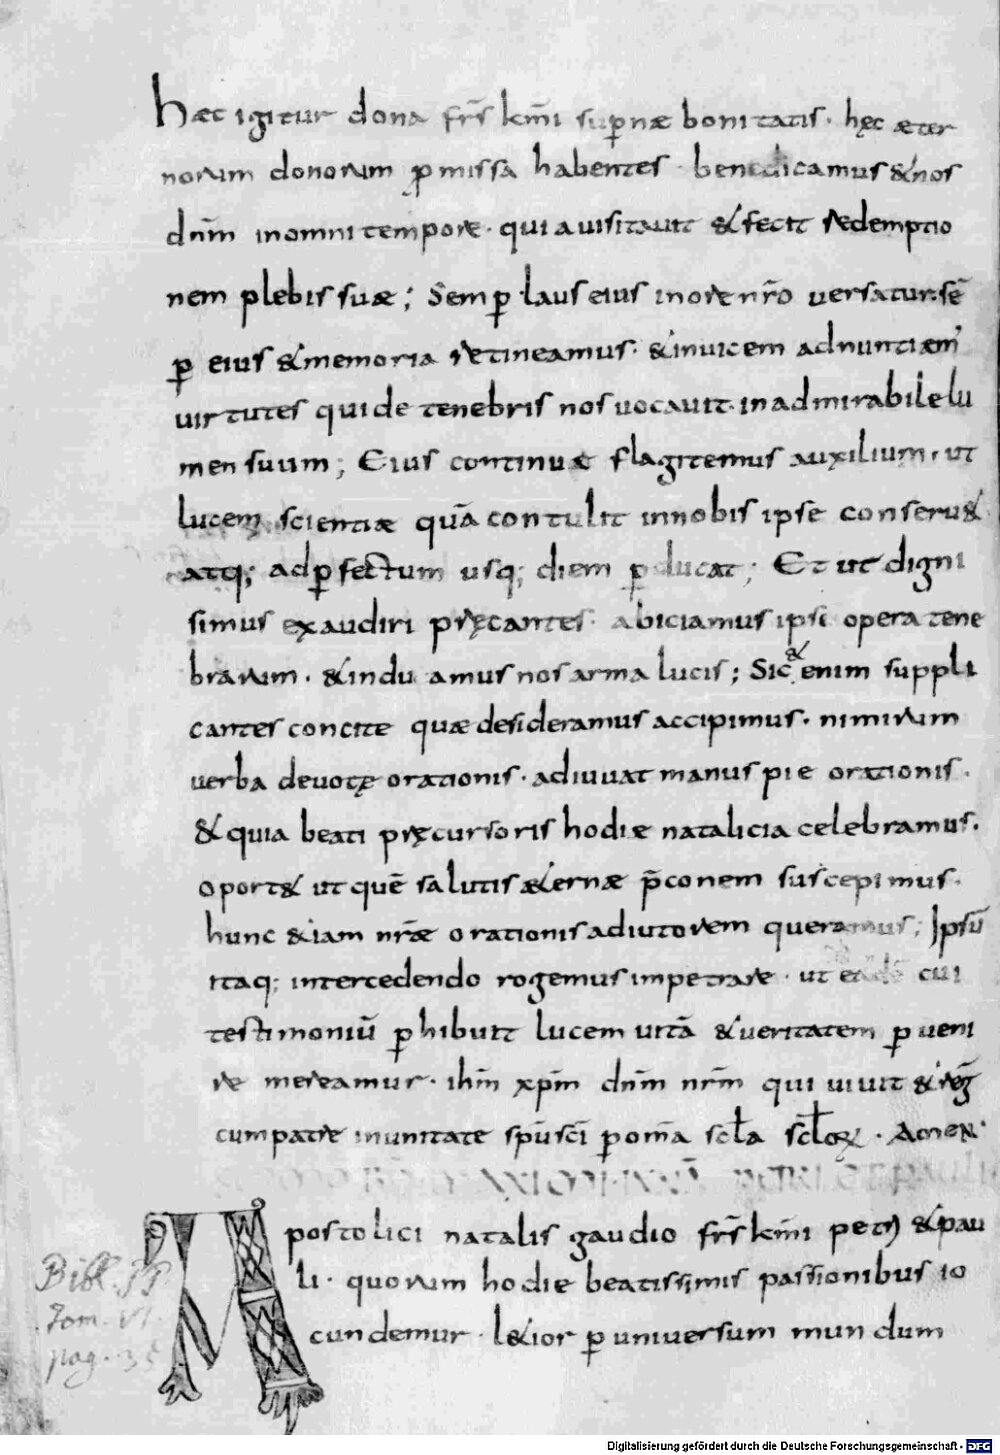 Haec igitur dona fr̄s km̄i supernae bonitatis. hęc aeter
norum donorum p̱missa habentes benedicamus & nos
dn̄m in omni tempore. qui a uisitauit & fecit redemptio
nem plebis suae; Semp̱ laus eius in ore nr̄o uersatur. sē
p̱ eius & memoria retineamus. & inuicem adnuntiem'
uirtutes qui de tenebris nos uocauit. in admirabile lu
men suum; Eius continuae flagitemus auxilium. ut
lucem scientiae quā contulit in nobis ipse conseru&
atq; ad p̱fectum usq; diem p̱ducat; Et ut digni
simus exaudiri pręcantes. abiciamus ipsi opera tene
brarum. & induamus nos arma lucis; Sic & enim suppli
cantes concite quae desideramus accipimus. nimirum
uerba deuotę orationis. adiuuat manus pie orationis.
& quia beati pręcursoris hodiae natalicia celebramus.
oport& ut quē salutis ae&ernae p̄conem suscepimus.
hunc &iam nr̄ae orationis adiutorem queramus; Ipsū
itaq; intercedendo rogemus impetrare. ut eūdē cui
testimoniū p̱hibuit lucem uitā & ueritatem p̱ueni
re mereamur. ihm̄ xpm̄ dnm̄ nrm̄ qui uiuit & reḡ
cum patre in unitate sp̄u sc̄i p̱ om̄a sc̄la sc̄loꝝ. Amen.
Apostolici natalis gaudio fr̄s km̄i petri & pau
li. quorum hodie beatissimis passionibus io
cundemur. l&ior p̱ uniuersum mundum
Bibl. PP.
Tom. VI.
pag. 35
Digitalisierung gefördert durch die Deutsche Forschungsgemeinschaft - DFG